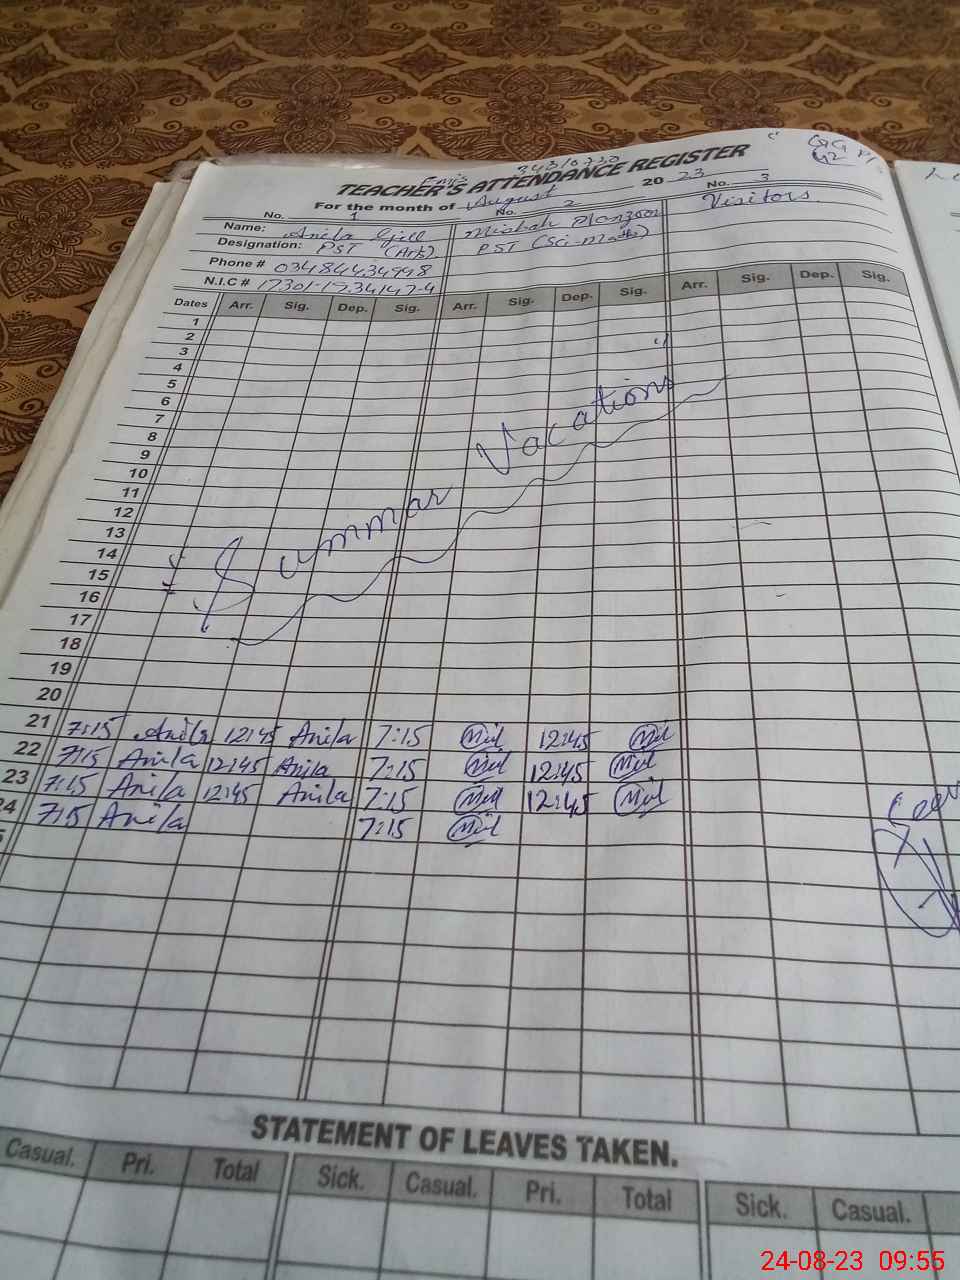 Emis 34310730
TEACHER'S ATTENDANCE REGISTER
For the month of August 2023
No. 1 No. 2 No. 3
Name: Anila Gill Misbah Manzoor Visitors
Designation: PST (Arts) PST (Sci-Maths)
Phone # 03484434998
N.I.C #
Dates Arr. Sig. Dep. Sig. Arr. Sig. Dep. Sig. Arr. Sig. Dep. Sig.
1
2
3
4
5
6
7
8
9
10
11
12
13
14
15
16
17
18
19
20
"Summar Vacations"
21 7:15 Anila 12:45 Anila 7:15 12:45
22 7:15 Anila 12:45 Anila 7:15 12:45
23 7:15 Anila 12:45 Anila 7:15 12:45
24 7:15 Anila 7:15
STATEMENT OF LEAVES TAKEN.
Casual. Pri. Total Sick. Casual. Pri. Total Sick. Casual.
24-08-23 09:55